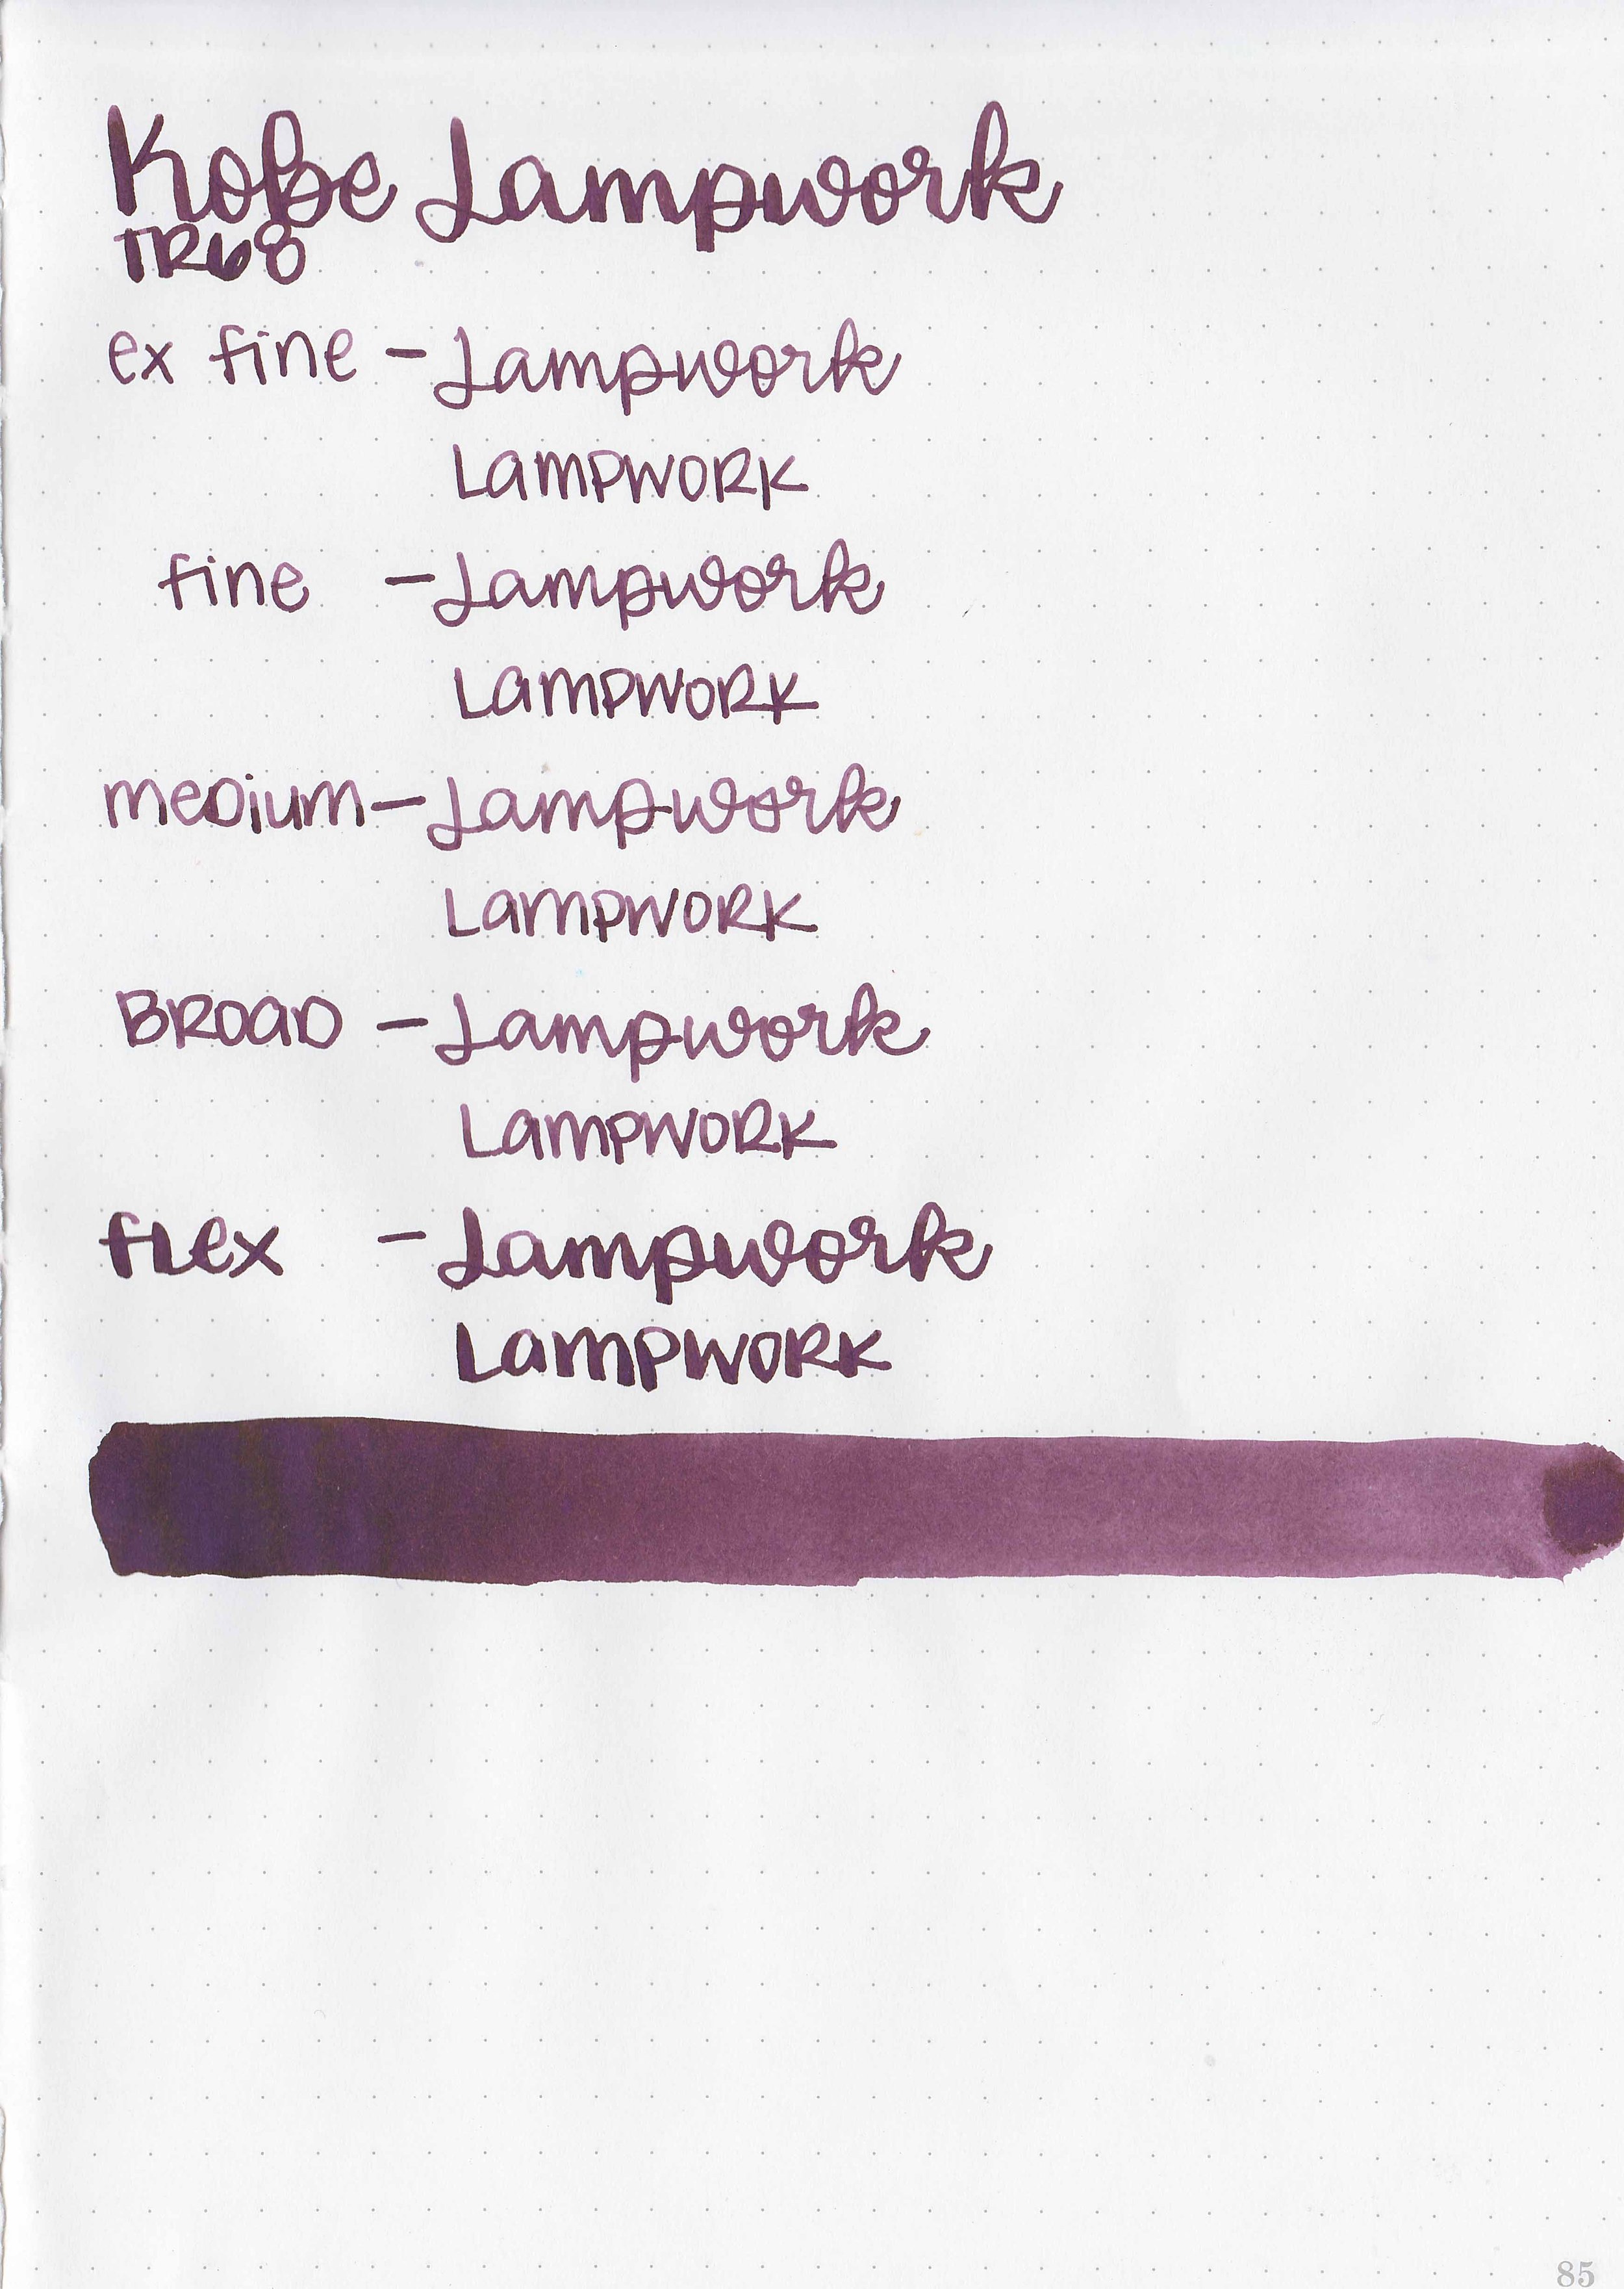 Kobe Lampwork
TR68
ex fine - Lampwork
LampWORK
fine - Lampwork
LampWORK
meDium - Lampwork
LampWORK
BROaD - Lampwork
LampWORK
fLex - Lampwork
LampWORK
85